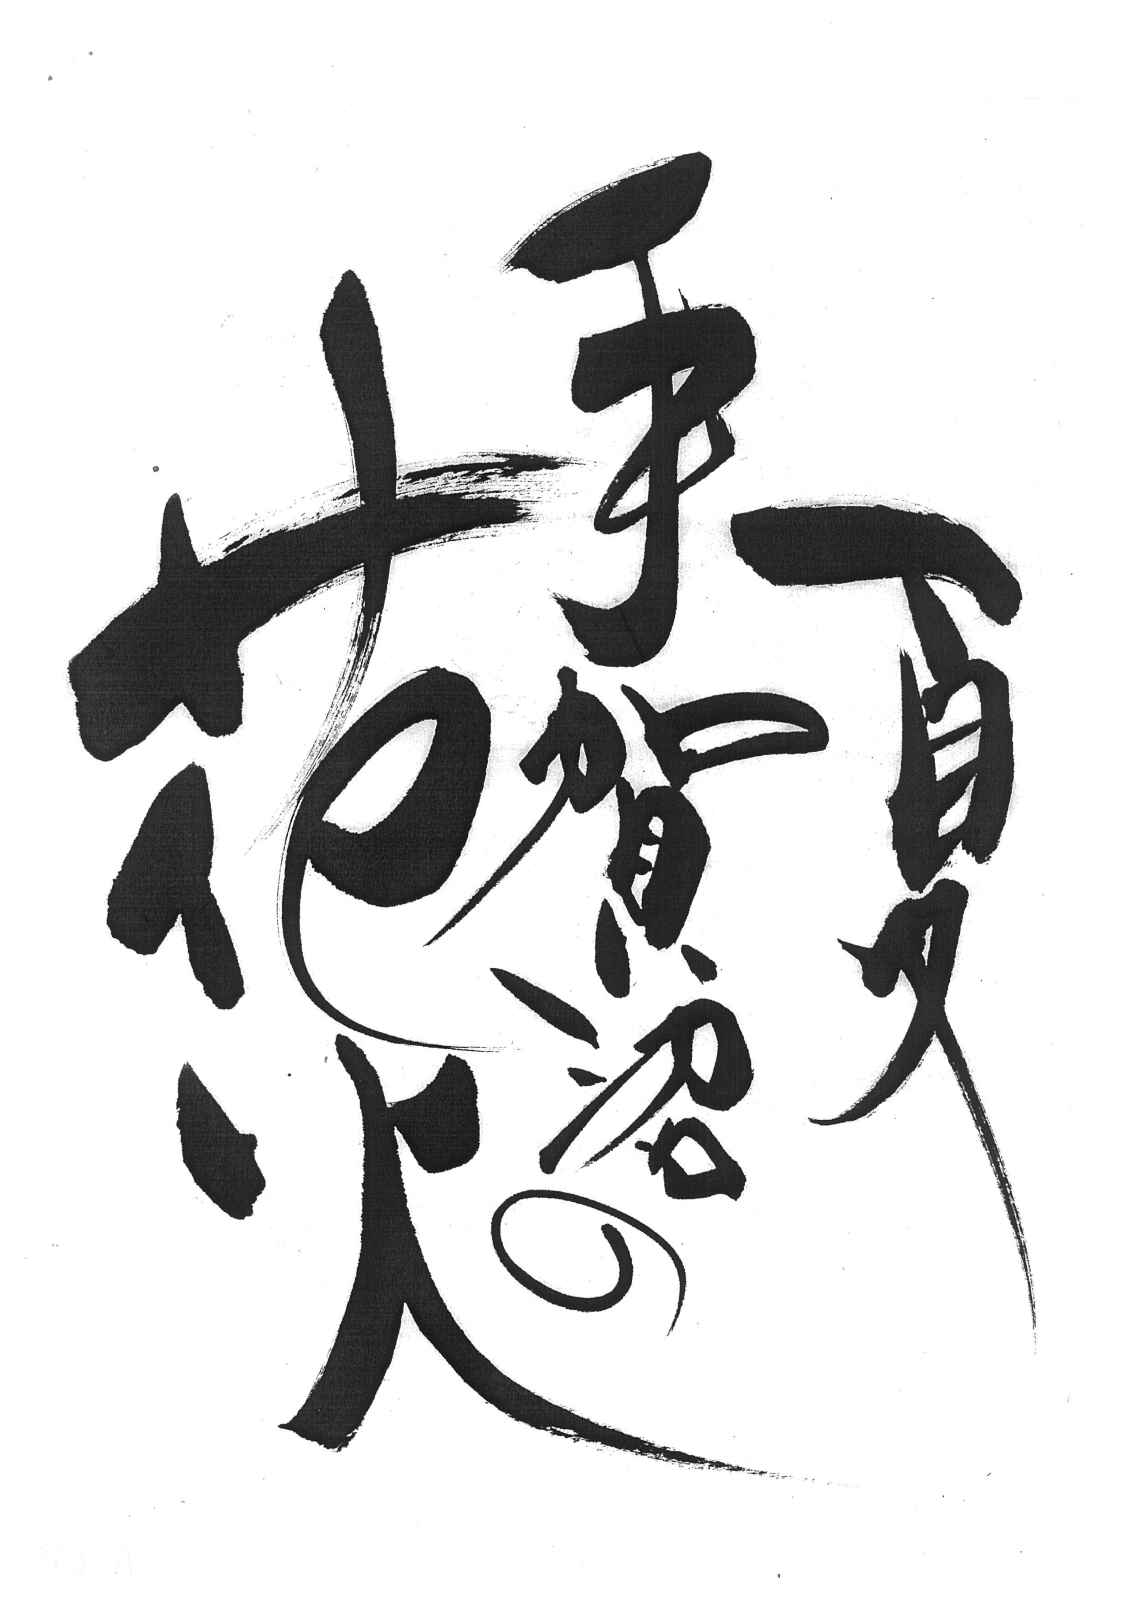 夏
手賀沼の
花火